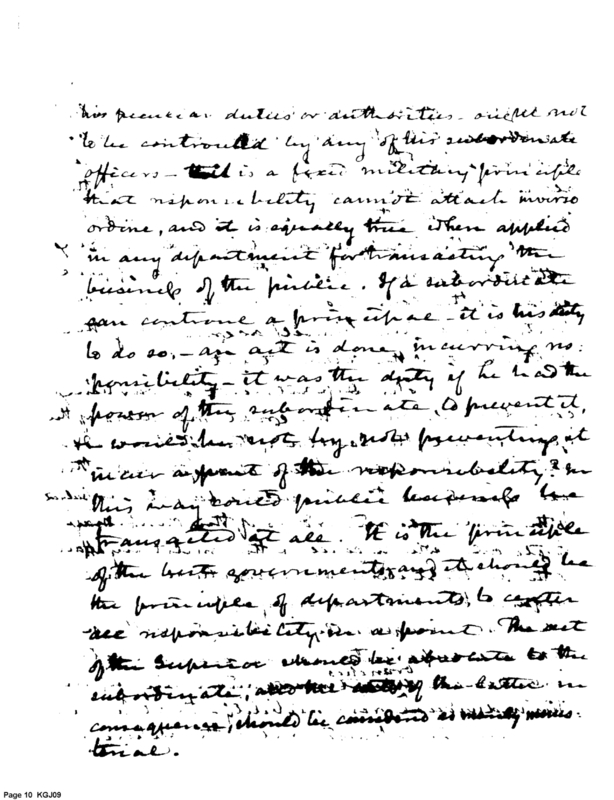 his peculiar duties or authorities - ought not
to be controuled by any of his subordinate
officers - this is a fixed military principle
that responsibility cannot attach inverso
ordine, and it is equally true when applied
in any department for transacting the
business of the public. If a subordinate
can controul a principal - it is his duty
to do so, - an act is done, incurring res:
ponsibility - it was the duty if he had the
power of the subordinate, to prevent it,
would he not by not preventing it
incur a part of the responsibility? In
this way could public business be
transacted at all. It is the principle
of the best governments, and it should be
the principle of departments, to center
all responsibility in a point. The act
of the Superior should be absolute to the
subordinate, of the latter in
consequence, should be considered as merely minis:
terial.
Page 10 KGJ09